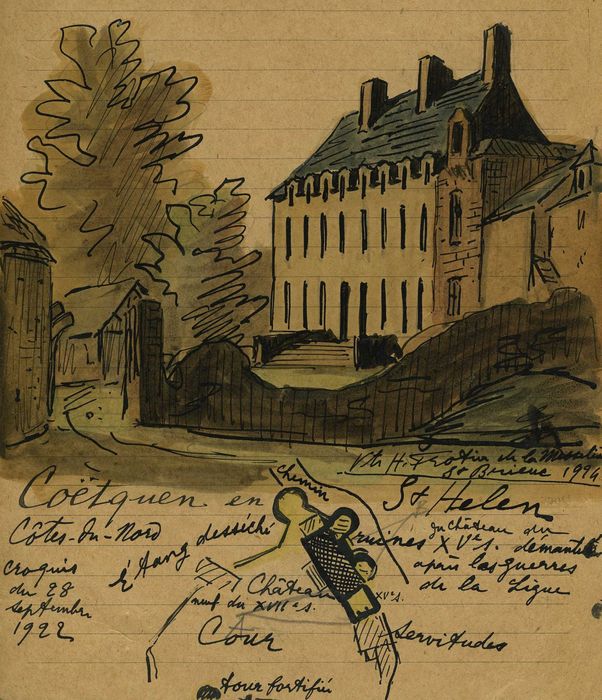 Vte H. Frotier de la Messelière
St Brieuc 1924
Coëtquen en St Helen
Côtes-du-Nord
croquis
du 28
septembre
1922
chemin
Étang desséché
ruines du château du
XVe s. démantelé
après les guerres
de la Ligue
Château
neuf du XVIIe s.
XVe s.
Cour
servitudes
tour fortifiée